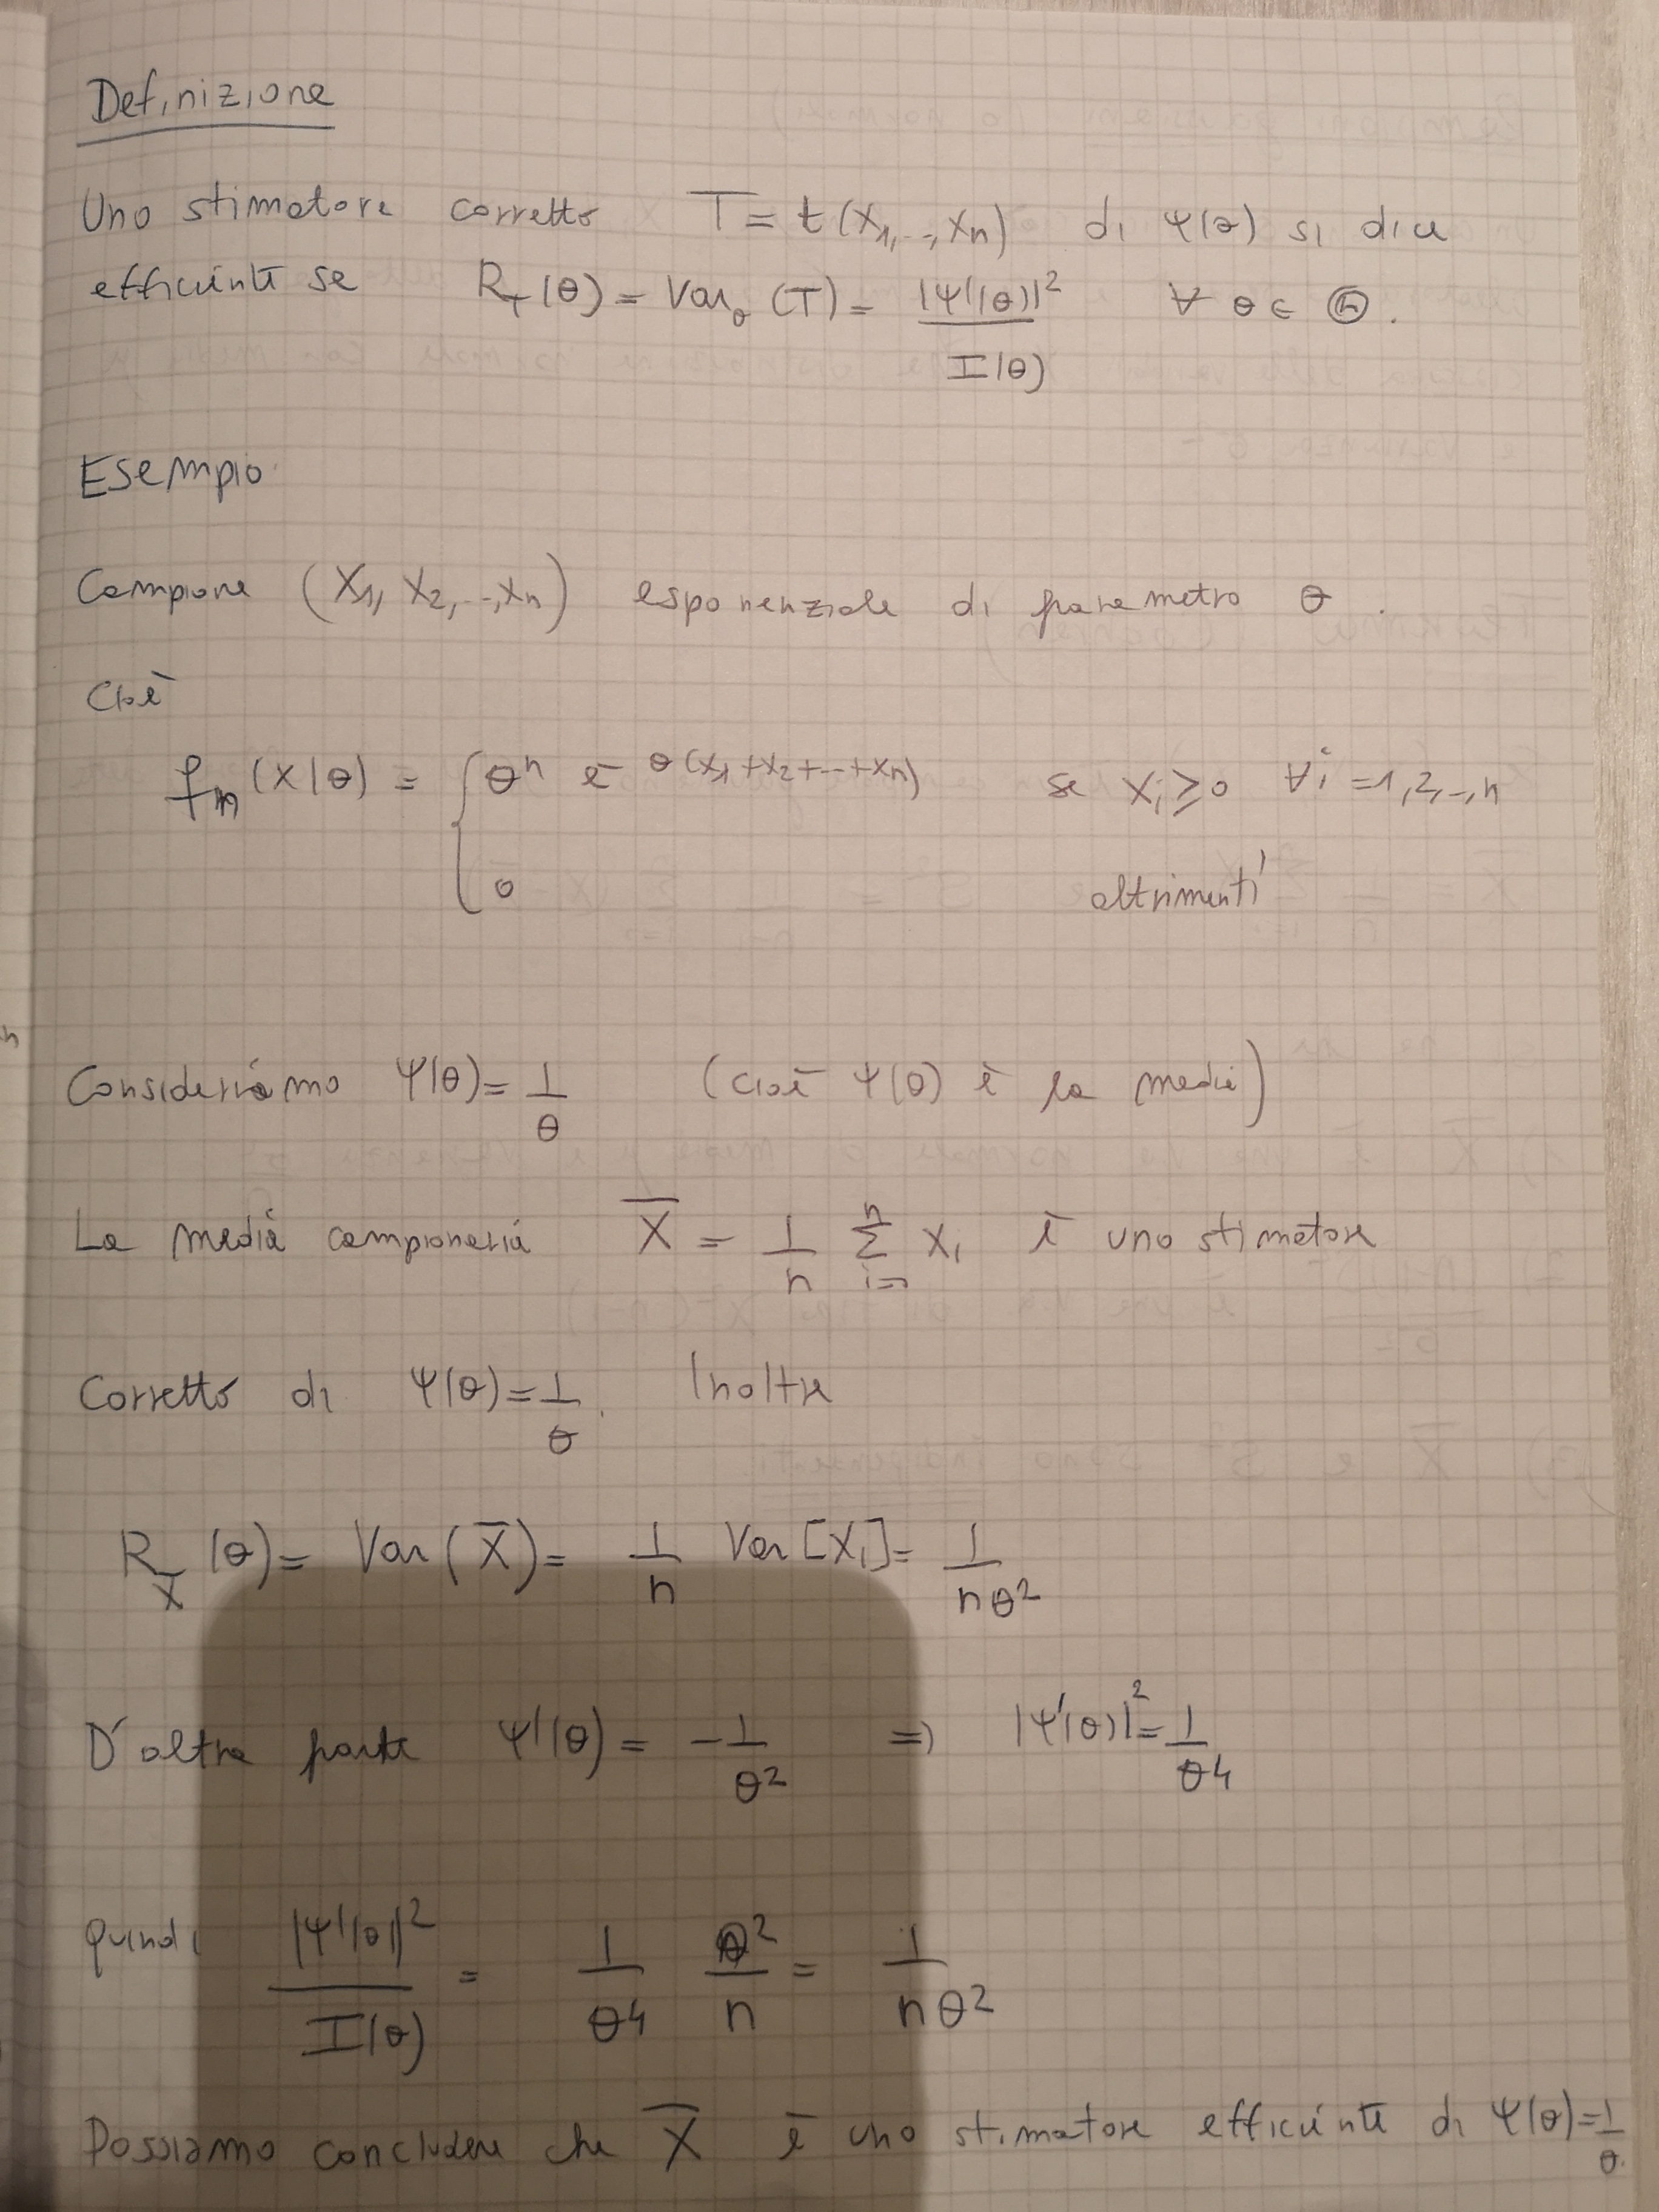 Definizione
Uno stimatore corretto T = t(X₁,..,Xn) di Ψ(θ) si dice
efficiente se R_T(θ) = Var_θ(T) = |Ψ'(θ)|² / I(θ) ∀ θ ∈ Θ.
Esempio
Campione (X₁, X₂,..,Xn) esponenziale di parametro θ.
Cioè
fn(x|θ) = { θⁿ e^-θ(x₁+x₂+..+xn) se xᵢ ≥ 0 ∀i = 1,2,..,n
0 altrimenti
Consideriamo Ψ(θ) = 1/θ (cioè Ψ(θ) è la media)
La media campionaria X̄ = 1/n Σ_{i=1}^n xᵢ è uno stimatore
Corretto di Ψ(θ) = 1/θ. Inoltre
R_X̄(θ) = Var(X̄) = 1/n Var[X₁] = 1/nθ²
D'altra parte Ψ'(θ) = -1/θ² => |Ψ'(θ)|² = 1/θ⁴
Quindi |Ψ'(θ)|² / I(θ) = 1/θ⁴ θ²/n = 1/nθ²
Possiamo concludere che X̄ è uno stimatore efficiente di Ψ(θ) = 1/θ.